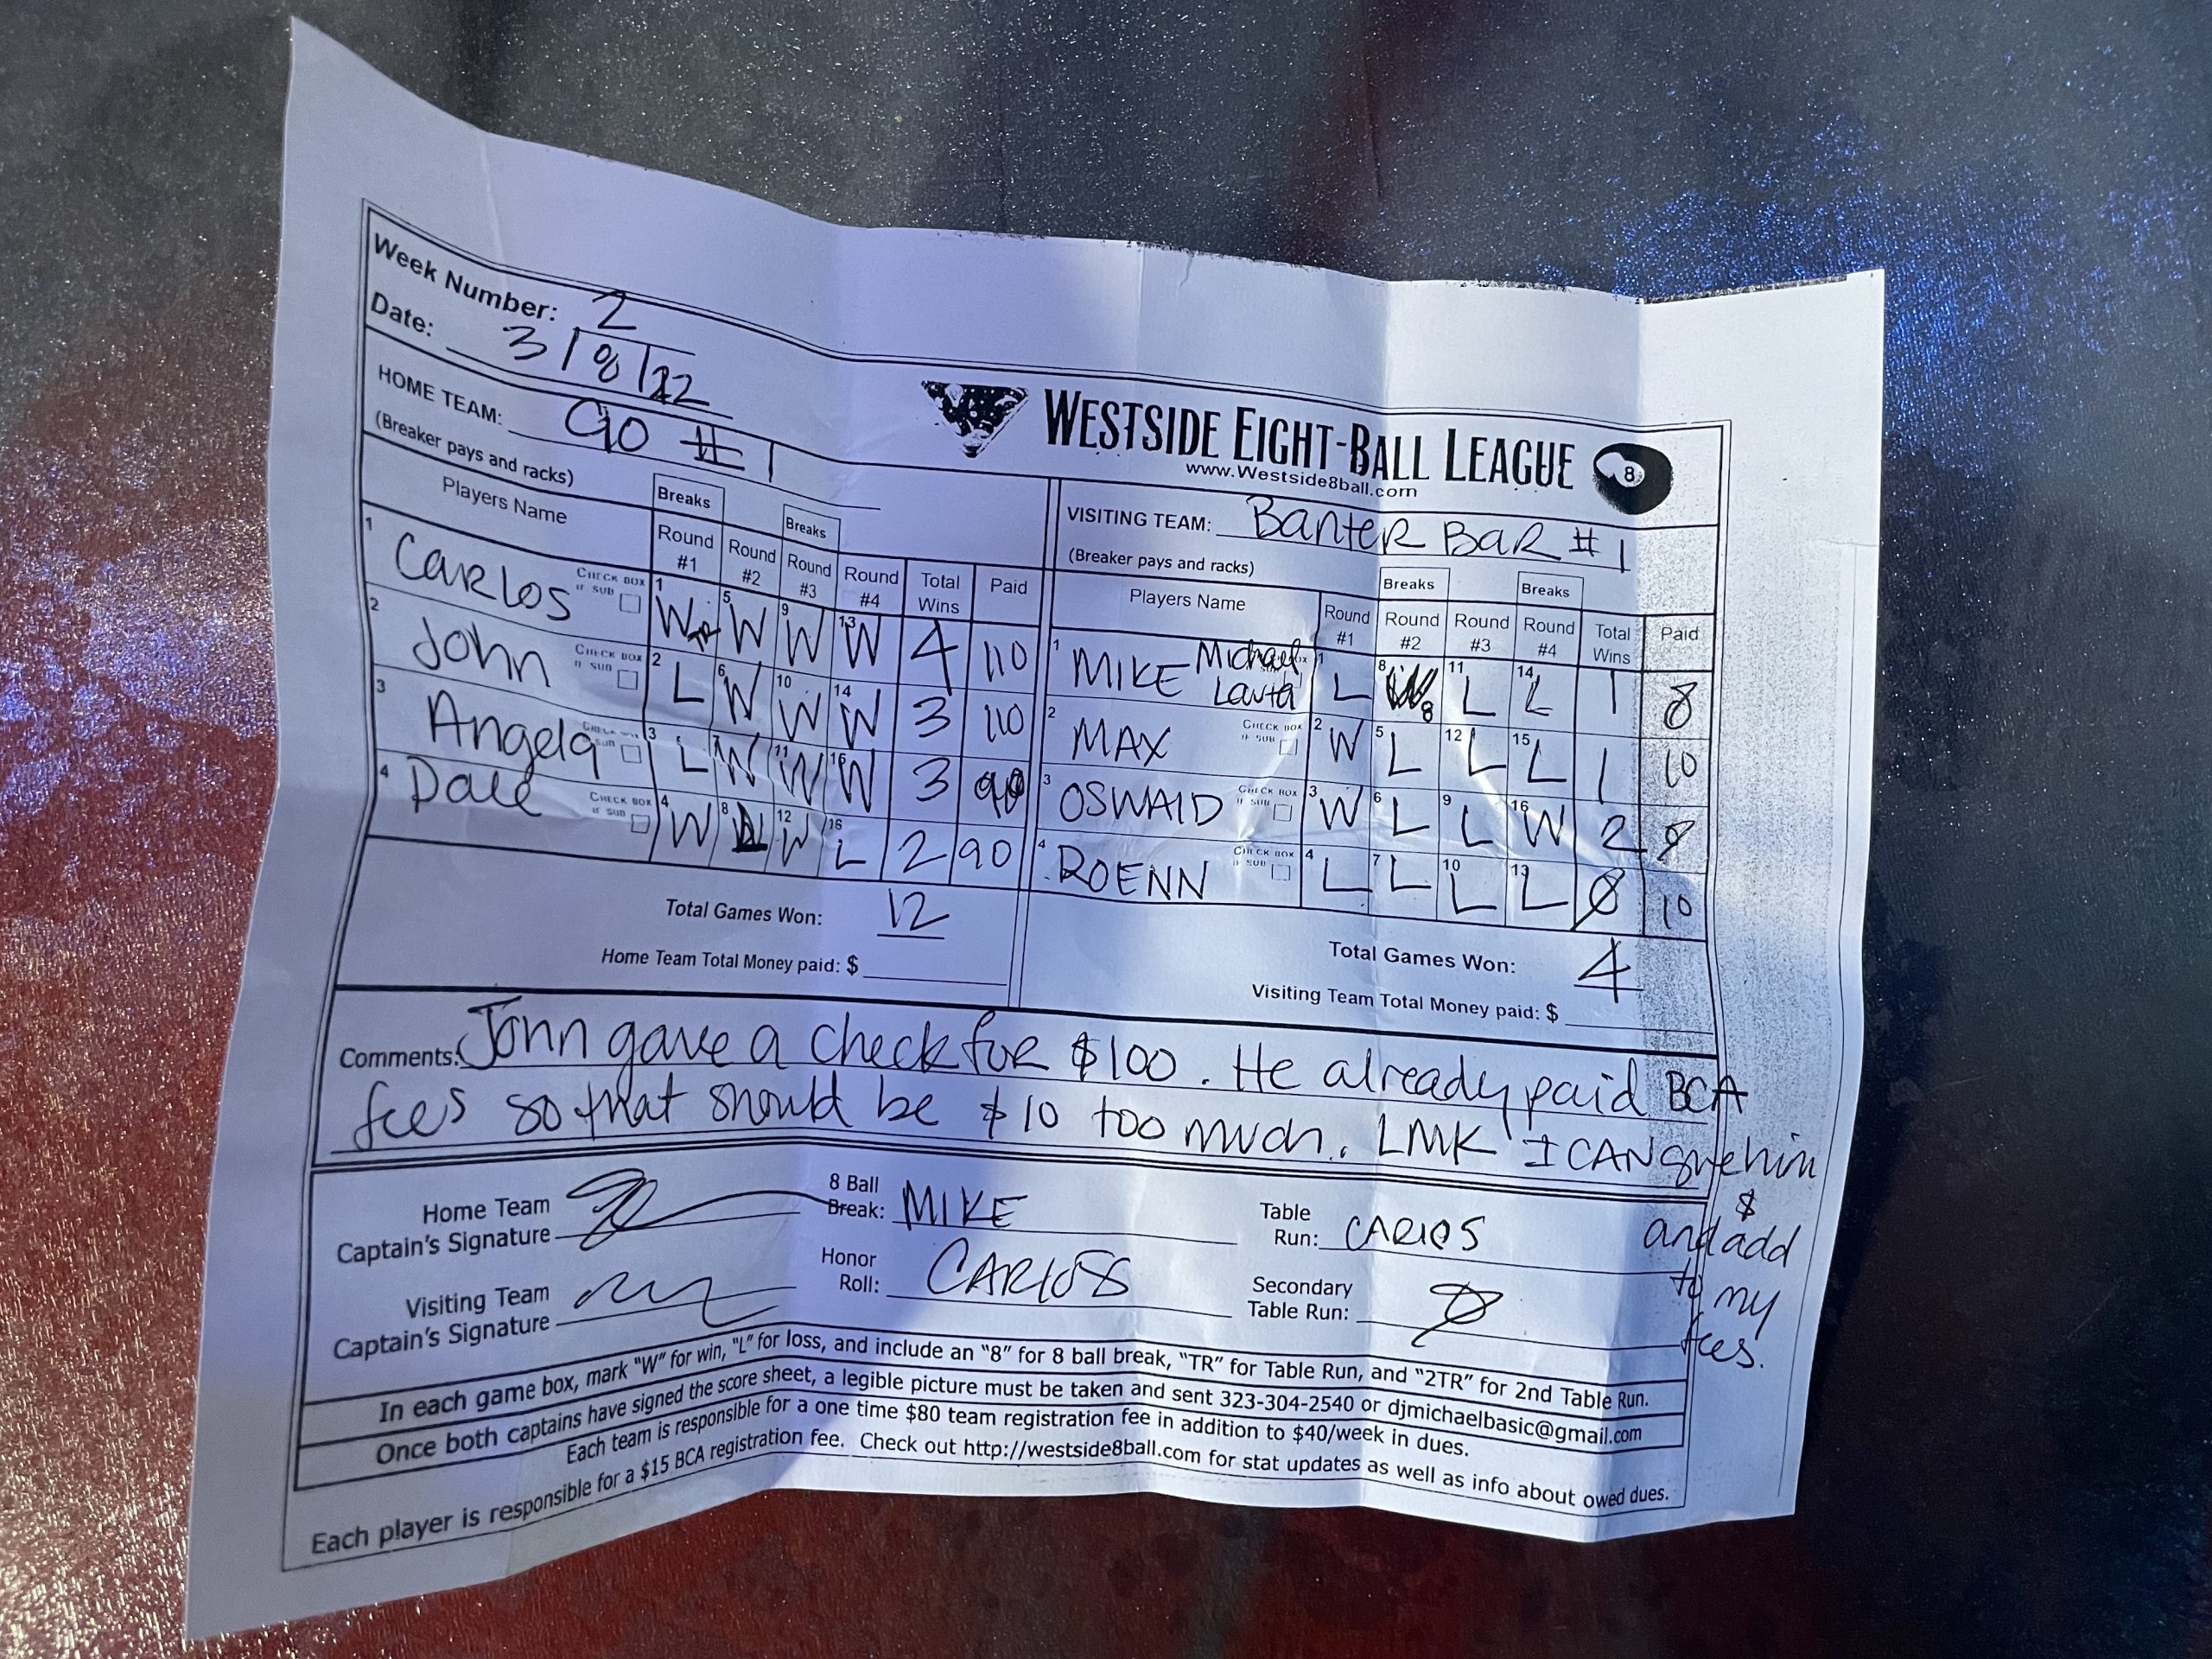 Week Number: 2
Date: 3/8/22
HOME TEAM: 90 #1
(Breaker pays and racks)
WESTSIDE EIGHT-BALL LEAGUE 8
www.Westside8ball.com
VISITING TEAM: Banter Bar #1
(Breaker pays and racks)
Breaks Breaks
Players Name Round #1 Round #2 Round #3 Round #4 Total Wins Paid
1 CARLOS CHECK BOX IF SUB 1 W 5 W 9 W 13 W 4 110
2 John CHECK BOX IF SUB 2 L 6 W 10 W 14 W 3 110
3 Angela 3 L 7 W 11 W 15 W 3 90
4 Dale CHECK BOX IF SUB 4 W 8 L 12 W 16 L 2 90
Total Games Won: 12
Home Team Total Money paid: $
Breaks Breaks
Players Name Round #1 Round #2 Round #3 Round #4 Total Wins Paid
1 MIKE Michael 1 L 8 W8 11 L 14 L 1
2 MAX CHECK BOX IF SUB 2 W 5 L 12 L 15 L 1 10
3 OSWALD CHECK BOX IF SUB 3 W 6 L 9 L 16 W 2
4 ROENN CHECK BOX IF SUB 4 L 7 L 10 L 13 L 0 10
Total Games Won: 4
Visiting Team Total Money paid: $
Comments: John gave a check for $100. He already paid BCA
fees so that should be $10 too much. LMK I CAN give him
$
and add
to my
fees.
Home Team
Captain's Signature
8 Ball
Break: MIKE
Table
Run: CARLOS
Visiting Team
Captain's Signature
Honor
Roll: CARLOS
Secondary
Table Run: 0
In each game box, mark "W" for win, "L" for loss, and include an "8" for 8 ball break, "TR" for Table Run, and "2TR" for 2nd Table Run.
Once both captains have signed the score sheet, a legible picture must be taken and sent 323-304-2540 or djmichaelbasic@gmail.com
Each team is responsible for a one time $80 team registration fee in addition to $40/week in dues.
Each player is responsible for a $15 BCA registration fee. Check out http://westside8ball.com for stat updates as well as info about owed dues.